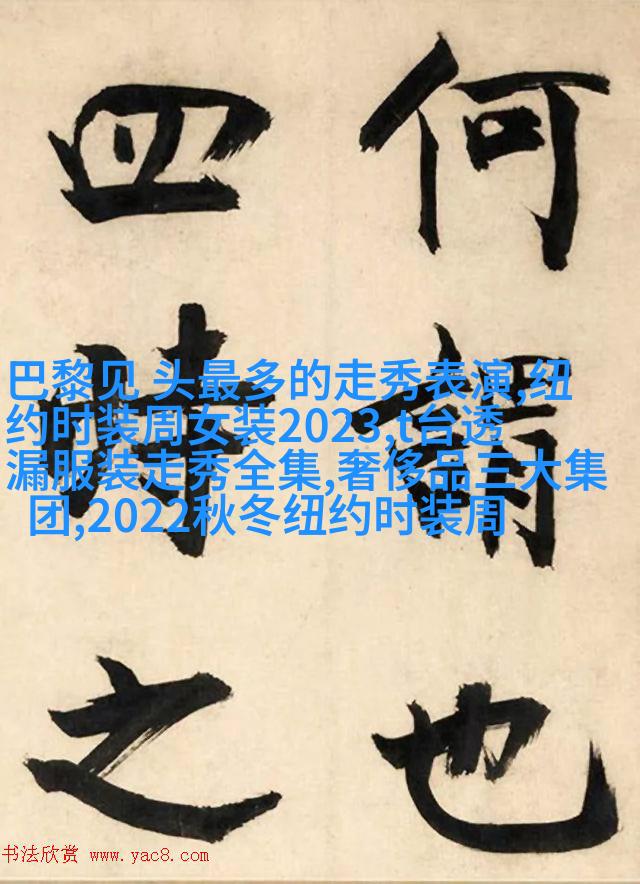 何謂也
四時之
巴黎见 头最多的走秀表演,纽
约时装周女装2023,t台透
漏服装走秀全集,奢侈品三大集
团,2022秋冬纽约时装周
书法欣赏 www.yac8.com